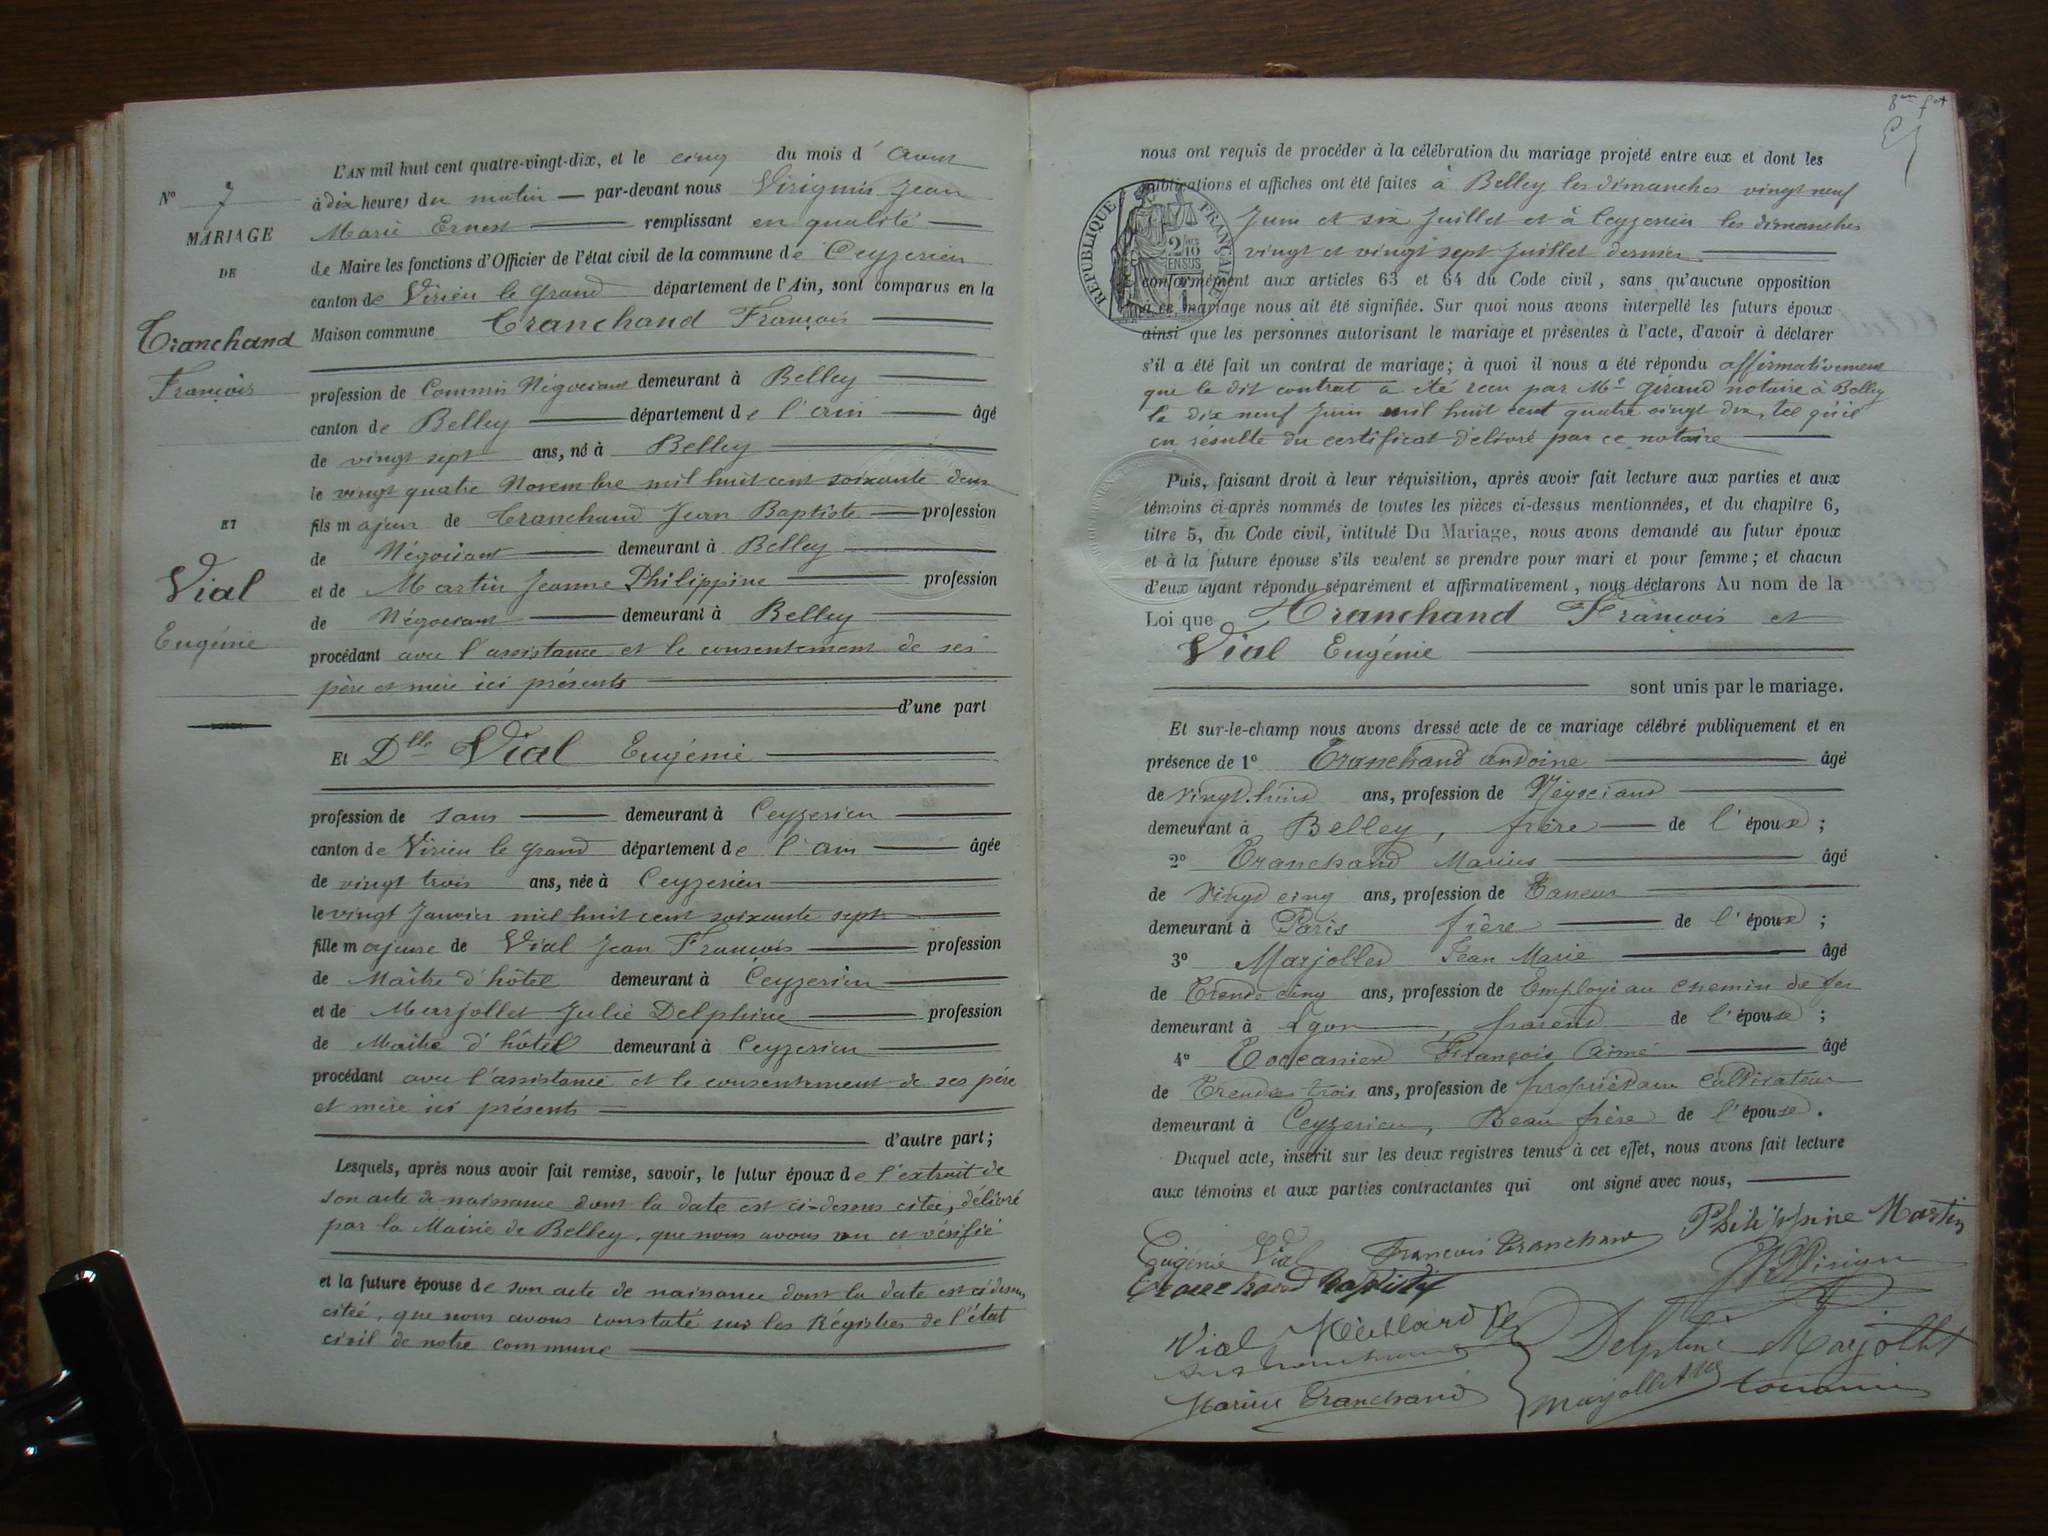 N° 7
MARIAGE
DE
Tranchand
François
ET
Vial
Eugénie
L'AN mil huit cent quatre-vingt-dix, et le cinq du mois d'Aout
à dix heures du matin par-devant nous Jean
Marie Ernest remplissant en qualité
de Maire les fonctions d'Officier de l'état civil de la commune de Ceyzerieu
canton de Virieu le grand département de l'Ain, sont comparus en la
Maison commune Tranchand François
profession de Commis Négociant demeurant à Belley
canton de Belley département de l'ain âgé
de vingt sept ans, né à Belley
le vingt quatre Novembre mil huit cent soixante deux
fils majeur de Tranchand Jean Baptiste profession
de Négociant demeurant à Belley
et de Martin Jeanne Philippine profession
de Négociant demeurant à Belley
procédant avec l'assistance et le consentement de ses
père et mère ici présents
d'une part
Et Dlle Vial Eugénie
profession de sans demeurant à Ceyzerieu
canton de Virieu le grand département de l'ain âgée
de vingt trois ans, née à Ceyzerieu
le vingt Janvier mil huit cent soixante sept
fille majeure de Vial Jean François profession
de Maitre d'hôtel demeurant à Ceyzerieu
et de Marjollet Julie Delphine profession
de Maitre d'hôtel demeurant à Ceyzerieu
procédant avec l'assistance et le consentement de ses père
et mère ici présents
d'autre part;
Lesquels, après nous avoir fait remise, savoir, le futur époux de l'extrait de
son acte de naissance dont la date est ci-dessus citée, délivré
par la Mairie de Belley, que nous avons vu et vérifié
et la future épouse de son acte de naissance dont la date est ci dessus
citée, que nous avons constaté sur les Régistres de l'état
civil de notre commune
nous ont requis de procéder à la célébration du mariage projeté entre eux et dont les
publications et affiches ont été faites à Belley les dimanches vingt neuf
Juin et six Juillet et à Ceyzerieu les dimanches
vingt et vingt sept Juillet dernier
REPUBLIQUE FRANÇAISE
conformément aux articles 63 et 64 du Code civil, sans qu'aucune opposition
à ce mariage nous ait été signifiée. Sur quoi nous avons interpellé les futurs époux
ainsi que les personnes autorisant le mariage et présentes à l'acte, d'avoir à déclarer
s'il a été fait un contrat de mariage; à quoi il nous a été répondu affirmativement
que le dit contrat a été reçu par Me Girand notaire à Belley
le dix neuf Juin mil huit cent quatre vingt dix, tel qu'il
en résulte du certificat délivré par ce notaire
Puis, faisant droit à leur réquisition, après avoir fait lecture aux parties et aux
témoins ci-après nommés de toutes les pièces ci-dessus mentionnées, et du chapitre 6,
titre 5, du Code civil, intitulé Du Mariage, nous avons demandé au futur époux
et à la future épouse s'ils veulent se prendre pour mari et pour femme; et chacun
d'eux ayant répondu séparément et affirmativement, nous déclarons Au nom de la
Loi que Tranchand François et
Vial Eugénie
sont unis par le mariage.
Et sur-le-champ nous avons dressé acte de ce mariage célébré publiquement et en
présence de 1° Tranchand antoine âgé
de Vingt-huit ans, profession de Négociant
demeurant à Belley, frère de l'époux;
2° Tranchand Marius âgé
de Vingt cinq ans, profession de Taneur
demeurant à Paris frère de l'époux;
3° Marjollet Jean Marie âgé
de Trente cinq ans, profession de Employé au chemin de fer
demeurant à Lyon, parent de l'épouse;
4° François Aimé âgé
de Trente trois ans, profession de propriétaire cultivateur
demeurant à Ceyzerieu, Beau frère de l'épouse.
Duquel acte, inscrit sur les deux registres tenus à cet effet, nous avons fait lecture
aux témoins et aux parties contractantes qui ont signé avec nous,
Eugénie Vial François Tranchand Philippine Martin
Tranchand Baptiste
Vial
Delphine Marjollet
Marius Tranchand Marjollet